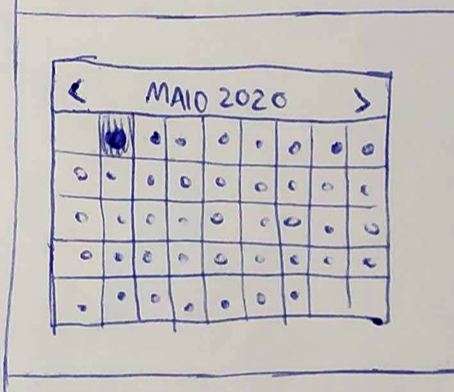 < MAIO 2020 >